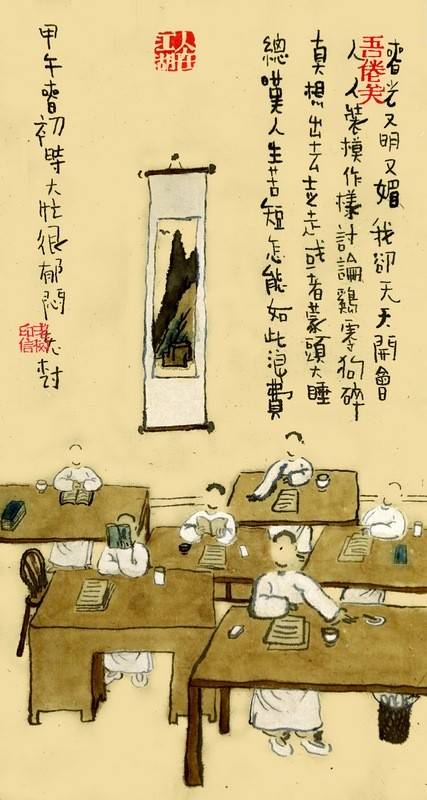 吾倦矣
春光又明又媚我卻天天開會
人人裝摸作樣討論鷄零狗碎
真想出去走走或者蒙頭大睡
總嘆人生苦短怎能如此浪費
人在江湖
甲午春初大忙很郁悶老树
老树印信